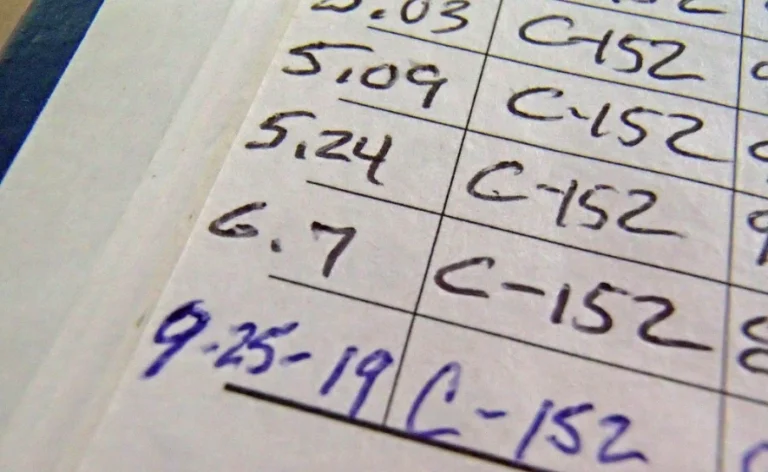 C-152
5.09 C-152
5.24 C-152
6.7 C-152
9-25-19 C-152